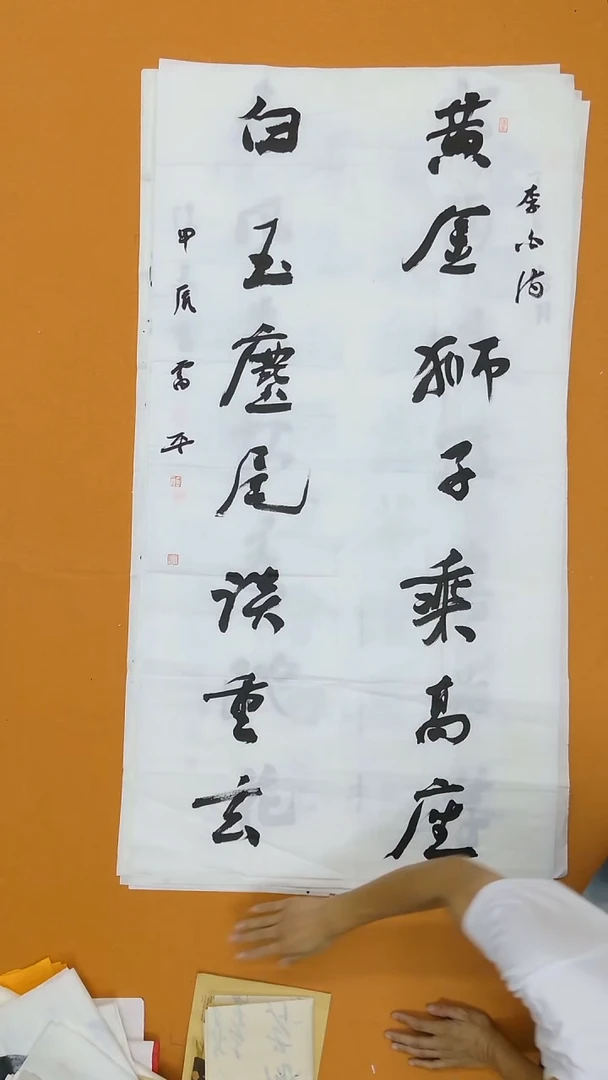 李白诗
黄金狮子乘高座
白玉麈尾谈重玄
甲辰雷平